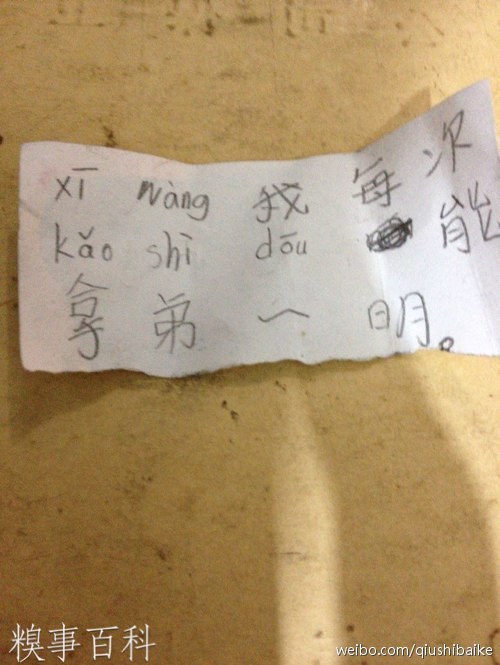 xī wàng 我 每 次
kǎo shì dōu 能
拿 弟 一 明。
糗事百科
weibo.com/qiushibaike